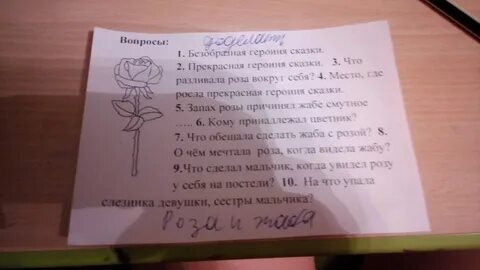 Вопросы: доделать
1. Безобразная героиня сказки.
2. Прекрасная героиня сказки. 3. Что
разливала роза вокруг себя? 4. Место, где
росла прекрасная героиня сказки.
5. Запах розы причинял жабе смутное
..... 6. Кому принадлежал цветник?
7. Что обещала сделать жаба с розой? 8.
О чём мечтала роза, когда видела жабу?
9.Что сделал мальчик, когда увидел розу
у себя на постели? 10. На что упала
слезинка девушки, сестры мальчика?
Роза и жаба